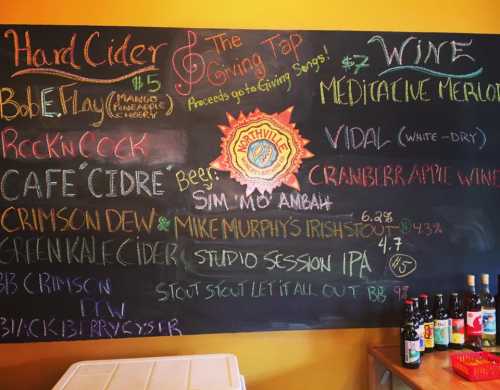 Hard Cider
$5
Bob E. Flay (MANGO PINEAPPLE CHERRY)
ROCK'N COCK
CAFÉ "CIDRE"
CRIMSON DEW
GREEN KALE CIDER
BB CRIMSON
DEW
BLACKBERRY CYSER
The
Giving Tap
Proceeds go to Giving Songs!
NORTHVILLE
Beer:
SIM 'MO' AMBAH
6.2%
& MIKE MURPHY'S IRISH STOUT 4.3%
4.7
STUDIO SESSION IPA $5
STOUT STOUT LET IT ALL OUT BB
$7 WINE
MEDITATIVE MERLOT
VIDAL (WHITE-DRY)
CRANBERR APPLE WINE